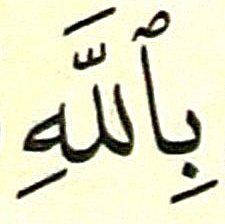 بِٱللَّهِ